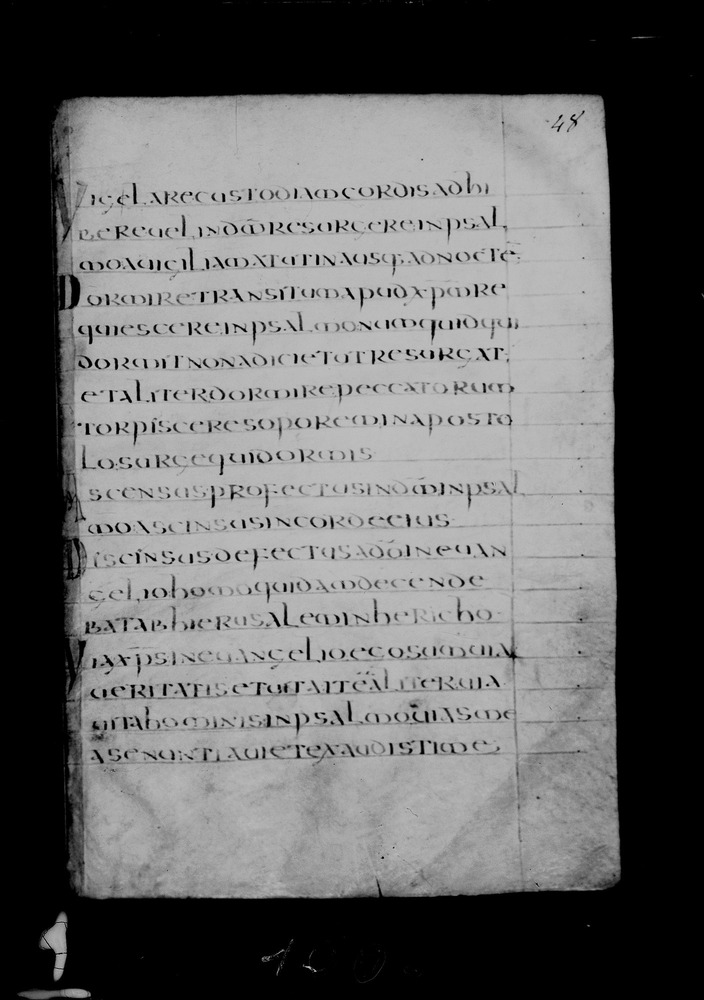 48
VIGELARECUSTODIAMCORDISADHI
BEREUELINDM̄RESURGEREINPSAL
MOAUIGILIAMATUTINAUSQ·ADNOCTE;
DORMIRETRANSITUMAPUDXP̄MRE
QUIESCEREINPSALMONUMQUIDQUI
DORMITNONADICIETUTRESURGAT;
ETALITERDORMIREPECCATORUM
TORPISCERESOPOREMINAPOSTO
LOSURGEQUIDORMIS
ASCENSUSPROFECTUSINDM̄INPSAL
MOASCINSUSINCORDEEIUS
DISCINSUSDEFECTUSADDŌINEUAN
GELIOHOMOQUIDAMDECENDE
BATABHIERUSALEMINHERICHO
VIAXP̄SINEUANGELIOEGOSUMUIA
UERITATISETUITAITEALITERUIA
UITAHOMINISINPSALMOUIASME
ASENUNTIAUIETEXAUDISTIME;